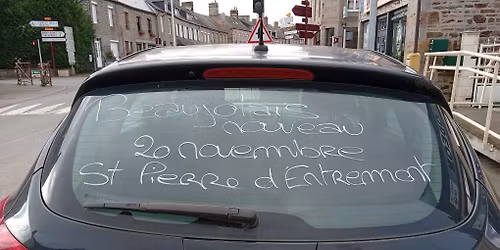 Beaujolais
nouveau
20 novembre
St Pierre d'Entremont